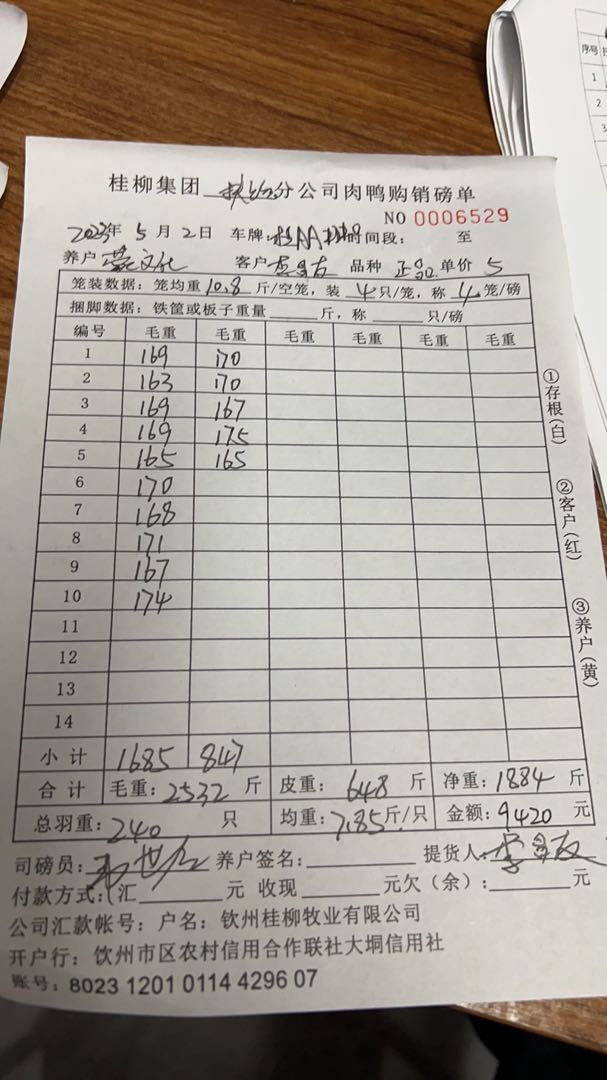 桂柳集团 分公司肉鸭购销磅单
NO 0006529
2023年 5 月 2 日 车牌: 时间段: 至
养户 文化 客户李昌友 品种 正品 单价 5
笼装数据: 笼均重 10.8 斤/空笼, 装 4 只/笼, 称 4 笼/磅
捆脚数据: 铁筐或板子重量 斤, 称 只/磅
编号 毛重 毛重 毛重 毛重 毛重 毛重
1 169 170
2 163 170
3 169 167
4 169 175
5 165 165
6 170
7 168
8 171
9 167
10 174
11
12
13
14
小 计 1685 847
合 计 毛重: 2532 斤 皮重: 648 斤 净重: 1884 斤
总羽重: 240 只 均重: 7.85斤/只 金额: 9420 元
司磅员: 养户签名: 提货人: 李昌友
付款方式:(汇 元 收现 元欠 (余): 元
公司汇款帐号: 户名: 钦州桂柳牧业有限公司
开户行: 饮州市区农村信用合作联社大垌信用社
账号: 8023 1201 0114 4296 07
①存根(白)
②客户(红)
③养户(黄)
序号
1
2
3